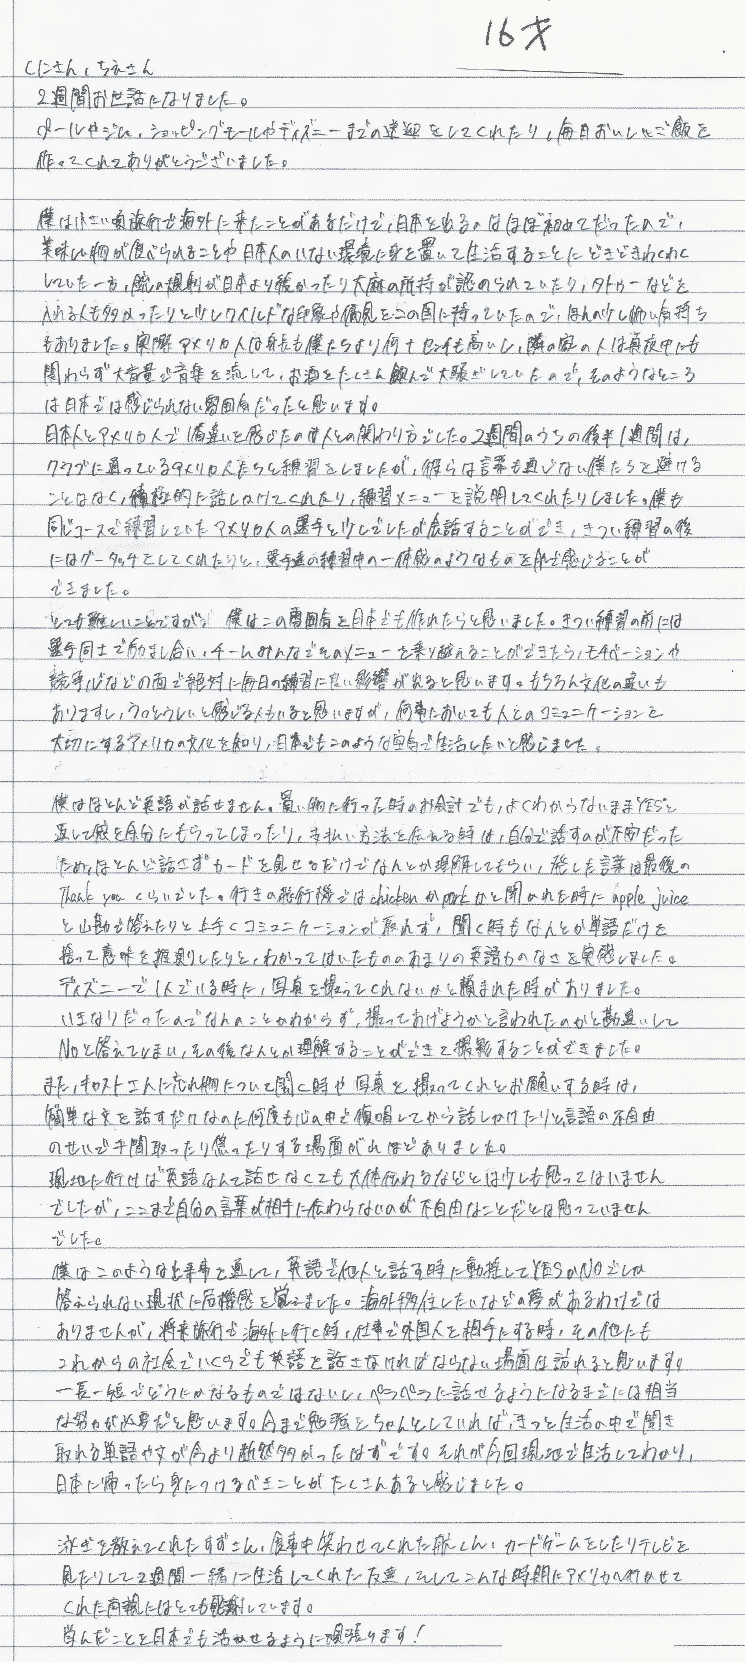 16才
くにさん、ちえさん
2週間お世話になりました。
プールやジム、ショッピングモールやディズニーまでの送迎をしてくれたり、毎日おいしいご飯を
作ってくれてありがとうございました。
僕は小さい頃旅行で海外に来たことがあるだけで、日本を出るのはほぼ初めてだったので、
美味しい物が食べられることや日本人のいない環境に身を置いて生活することにどきどきわくわく
していた一方、銃の規制が日本より緩かったり大麻の所持が認められていたり、タトゥーなどを
入れる人も多かったりと少しワイルドな印象や偏見をこの国に持っていたので、ほんの少し怖い気持ち
もありました。実際アメリカ人は身長も僕たちより何十センチも高いし、隣の家の人は真夜中にも
関わらず大音量で音楽を流して、お酒をたくさん飲んで大騒ぎしていたので、そのようなところ
は日本では感じられない雰囲気だったと思います。
日本人とアメリカ人で1番違いを感じたのは人との関わり方でした。2週間のうちの後半1週間は、
クラブに通っているアメリカ人たちと練習をしましたが、彼らは言葉も通じない僕たちを避ける
ことはなく、積極的に話しかけてくれたり、練習メニューを説明してくれたりしました。僕も
同じコースで練習していたアメリカ人の選手と少しでしたが会話することができ、きつい練習の後
にはグータッチをしてくれたりと、選手達の練習中の一体感のようなものを肌で感じることが
できました。
とても難しいことですが、僕はこの雰囲気を日本でも作れたらと思いました。きつい練習の前には
選手同士で励まし合い、チームみんなでそのメニューを乗り越えることができたら、モチベーションや
競争心などの面で絶対に毎日の練習に良い影響が出ると思います。もちろん文化の違いも
ありますし、うっとうしいと感じる人もいると思いますが、何事においても人とのコミュニケーションを
大切にするアメリカの文化を知り、日本でもこのような空気で生活したいと感じました。
僕はほとんど英語が話せません。買い物に行った時のお会計でも、よくわからないままYESと
返して袋を余分にもらってしまったり、支払い方法を伝える時は、自分で話すのが不安だった
ため、ほとんど話さずカードを見せるだけでなんとか理解してもらい、発した言葉は最後の
Thank youくらいでした。行きの飛行機ではchickenかporkかと聞かれた時にapple juice
と山勘で答えたりと上手くコミュニケーションが取れず、聞く時もなんとか単語だけを
拾って意味を推測したりと、わかってはいたもののあまりの英語力のなさを実感しました。
ディズニーで1人でいる時に、写真を撮ってくれないかと頼まれた時がありました。
いきなりだったのでなんのことかわからず、撮ってあげようかと言われたのかと勘違いして
Noと答えてしまい、その後なんとか理解することができて撮影することができました。
また、キャストさんに忘れ物について聞く時や写真を撮ってくれとお願いする時は、
簡単な文を話すだけなのに何度も心の中で復唱してから話しかけたりと、言語の不自由
のせいで手間取ったり焦ったりする場面がれほどありました。
現地に行けば英語なんて話せなくても大体伝わるなどとは少しも思ってはいません
でしたが、ここまで自分の言葉が相手に伝わらないのが不自由なことだとは思っていません
でした。
僕はこのような出来事を通して、英語で他人と話す時に動揺してYESかNOでしか
答えられない現状に危機感を覚えました。海外移住したいなどの夢があるわけでは
ありませんが、将来旅行で海外に行く時、仕事で外国人を相手にする時、その他にも
これからの社会でいくらでも英語を話さなければならない場面は訪れると思います。
一長一短でどうにかなるものではないし、ペラペラに話せるようになるまでには相当
な努力が必要だと思います。今まで勉強をちゃんとしていれば、きっと生活の中で聞き
取れる単語や文が今より断然多かったはずです。それが今回現地で生活してわかり、
日本に帰ったら身につけるべきことがたくさんあると感じました。
泳ぎを教えてくれたすずさん、食事中笑わせてくれた航くん、カードゲームをしたりテレビを
見たりして2週間一緒に生活してくれた友達、そしてこんな時期にアメリカへ行かせて
くれた両親にはとても感謝しています。
学んだことを日本でも活かせるように頑張ります!